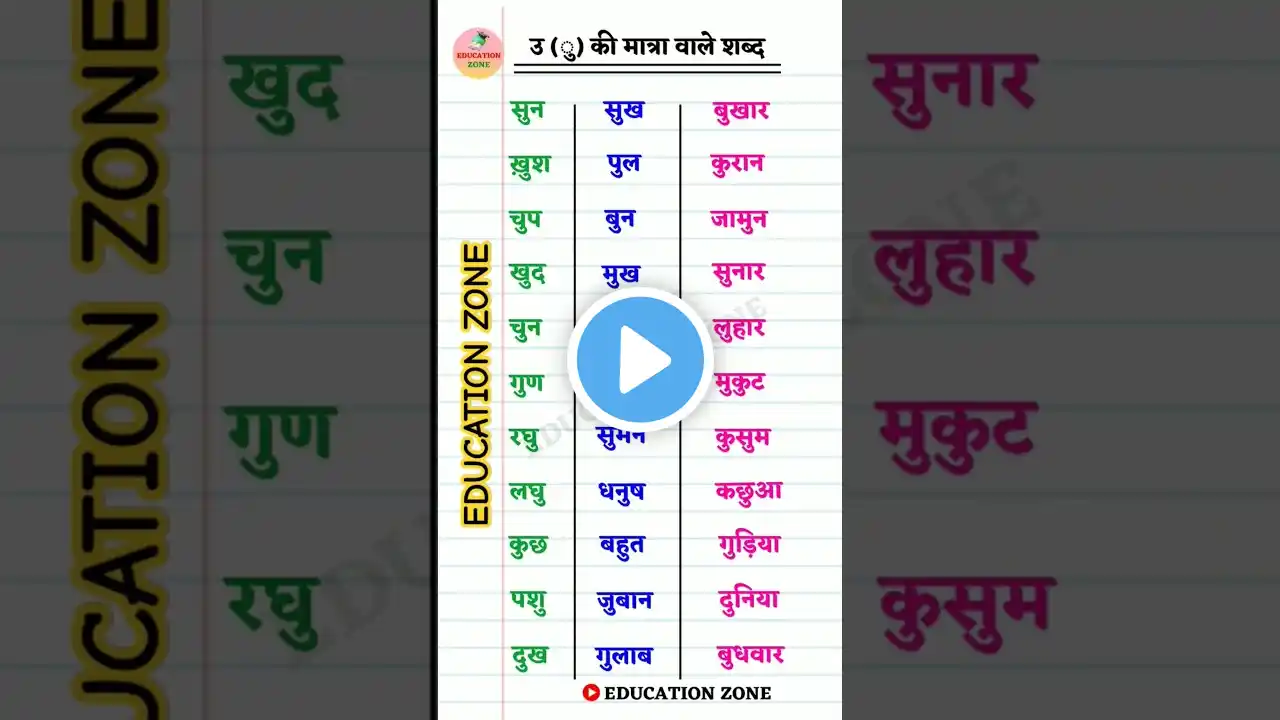 EDUCATION
ZONE
उ (ु) की मात्रा वाले शब्द
सुन सुख बुखार
ख़ुश पुल कुरान
चुप बुन जामुन
खुद मुख सुनार
चुन लुहार
गुण मुकुट
रघु सुमन कुसुम
लघु धनुष कछुआ
कुछ बहुत गुड़िया
पशु जुबान दुनिया
दुख गुलाब बुधवार
EDUCATION ZONE
EDUCATION ZONE
खुद
चुन
गुण
रघु
सुनार
लुहार
मुकुट
कुसुम